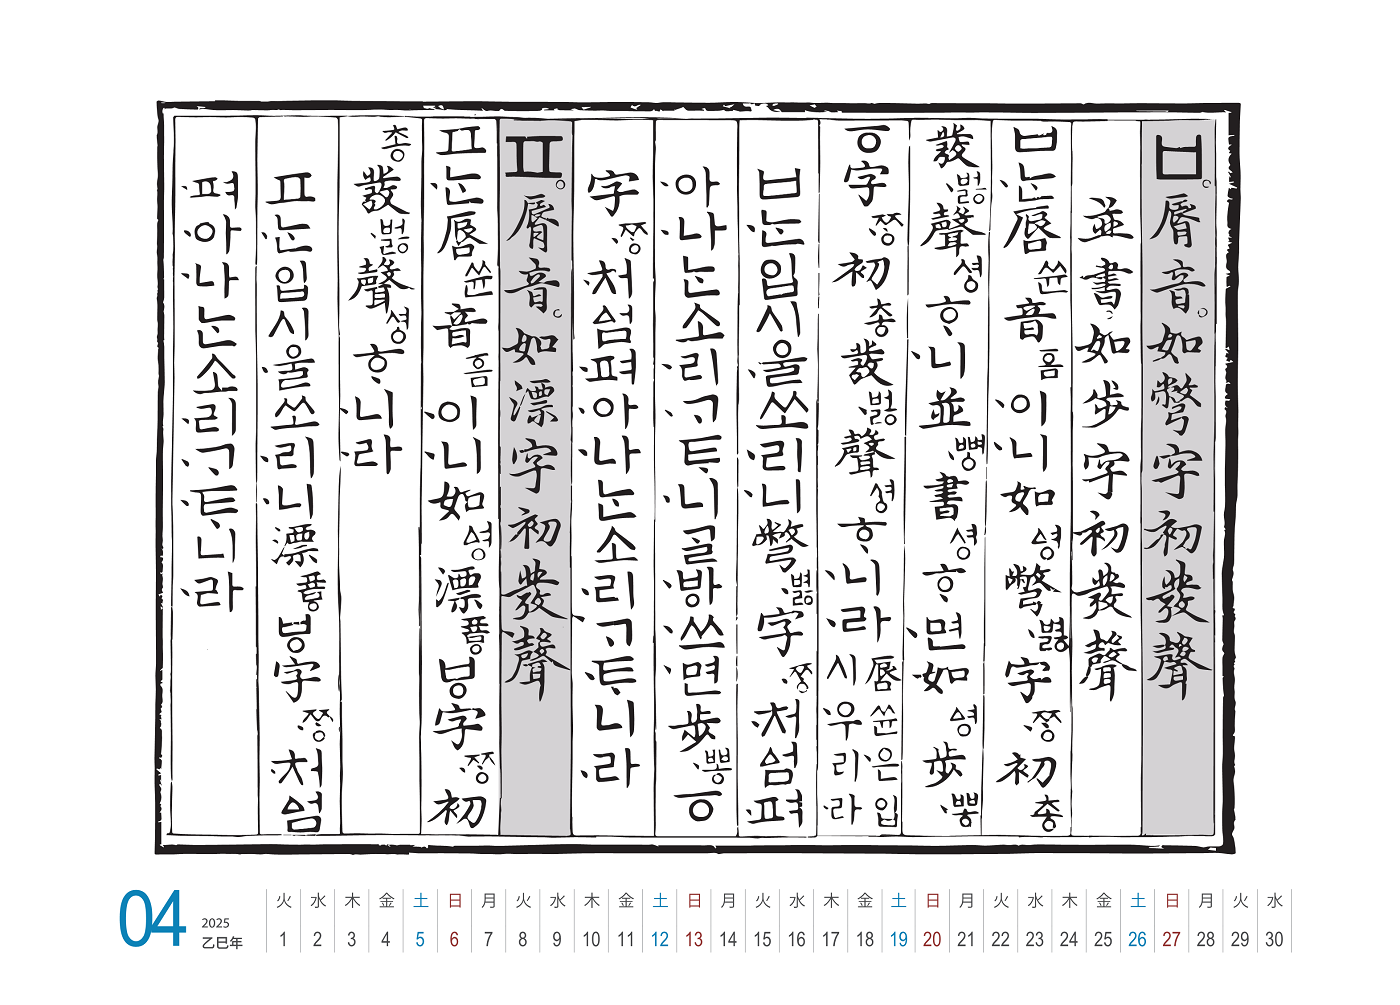 ㅂ。脣音。如彆字初發聲
並書。如步字初發聲
ㅂ·ᄂᆞᆫ唇쓘音ᅙᅳᆷ·이·니如ᅀᅧᆼ彆·볋字·ᄍᆞᆼ初총
發·벓聲셩ᄒᆞ·니並·뼝書셩ᄒᆞ·면如ᅀᅧᆼ步·뽕
ㆆ字·ᄍᆞᆼ初총發·벓聲셩ᄒᆞ·니·라唇쓘은입시·우·리·라
ㅂ·ᄂᆞᆫ입시·울쏘·리·니彆·볋字·ᄍᆞᆼ·처ᅀᅥᆷ·펴
·아·나ᄂᆞᆫ소·리·ᄀᆞ·ᄐᆞ·니ᄀᆞᆯ·ᄫᅡ·쓰·면步·뽕ㆆ
字·ᄍᆞᆼ·처ᅀᅥᆷ·펴·아·나ᄂᆞᆫ소·리·ᄀᆞ·ᄐᆞ·니·라
ㅍ。脣音。如漂字初發聲
ㅍ·ᄂᆞᆫ唇쓘音ᅙᅳᆷ·이·니如ᅀᅧᆼ漂푸ᇢㅸ字·ᄍᆞᆼ初
총發·벓聲셩ᄒᆞ·니·라
ㅍ·ᄂᆞᆫ입시·울쏘·리·니漂푸ᇢㅸ字·ᄍᆞᆼ·처ᅀᅥᆷ
·펴·아·나ᄂᆞᆫ소·리·ᄀᆞ·ᄐᆞ·니·라
04
2025
乙巳年
火 水 木 金 土 日 月 火 水 木 金 土 日 月 火 水 木 金 土 日 月 火 水 木 金 土 日 月 火 水
1 2 3 4 5 6 7 8 9 10 11 12 13 14 15 16 17 18 19 20 21 22 23 24 25 26 27 28 29 30